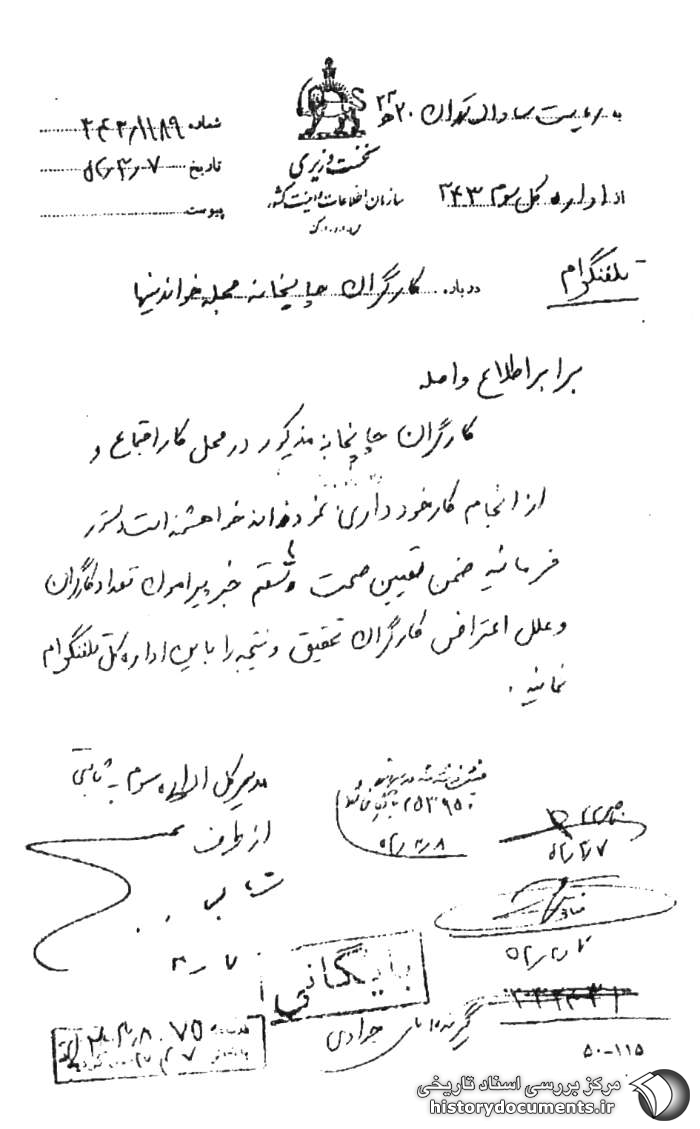 به ریاست ساواک تهران ۲۰ ھ ۲۲
از اداره کل سوم ۲۴۳
نخست وزیری
سازمان اطلاعات و امنیت کشور
شماره ۲۴۳/۱۱۸۹
تاریخ ۵۲/۲/۷
پیوست
تلفنگرام
درباره کارگران چاپخانه مجله خواندنیها
برابر اطلاع واصله
کارگران چاپخانه مذکور در محل کار اجتماع و
از انجام کار خودداری نموده‌اند خواهشمند است دستور
فرمائید ضمن تعیین صحت و سقم خبر پیرامون تعداد کارگران
و علل اعتراض کارگران تحقیق و نتیجه را باین اداره کل تلفنگرام
نمائید.
مدیرکل اداره سوم - ثابتی
از طرف
۵۲/۲/۸
بایگانی
گیرنده جوادی
۵۰-۱۱۵
مرکز بررسی اسناد تاریخی
historydocuments.ir